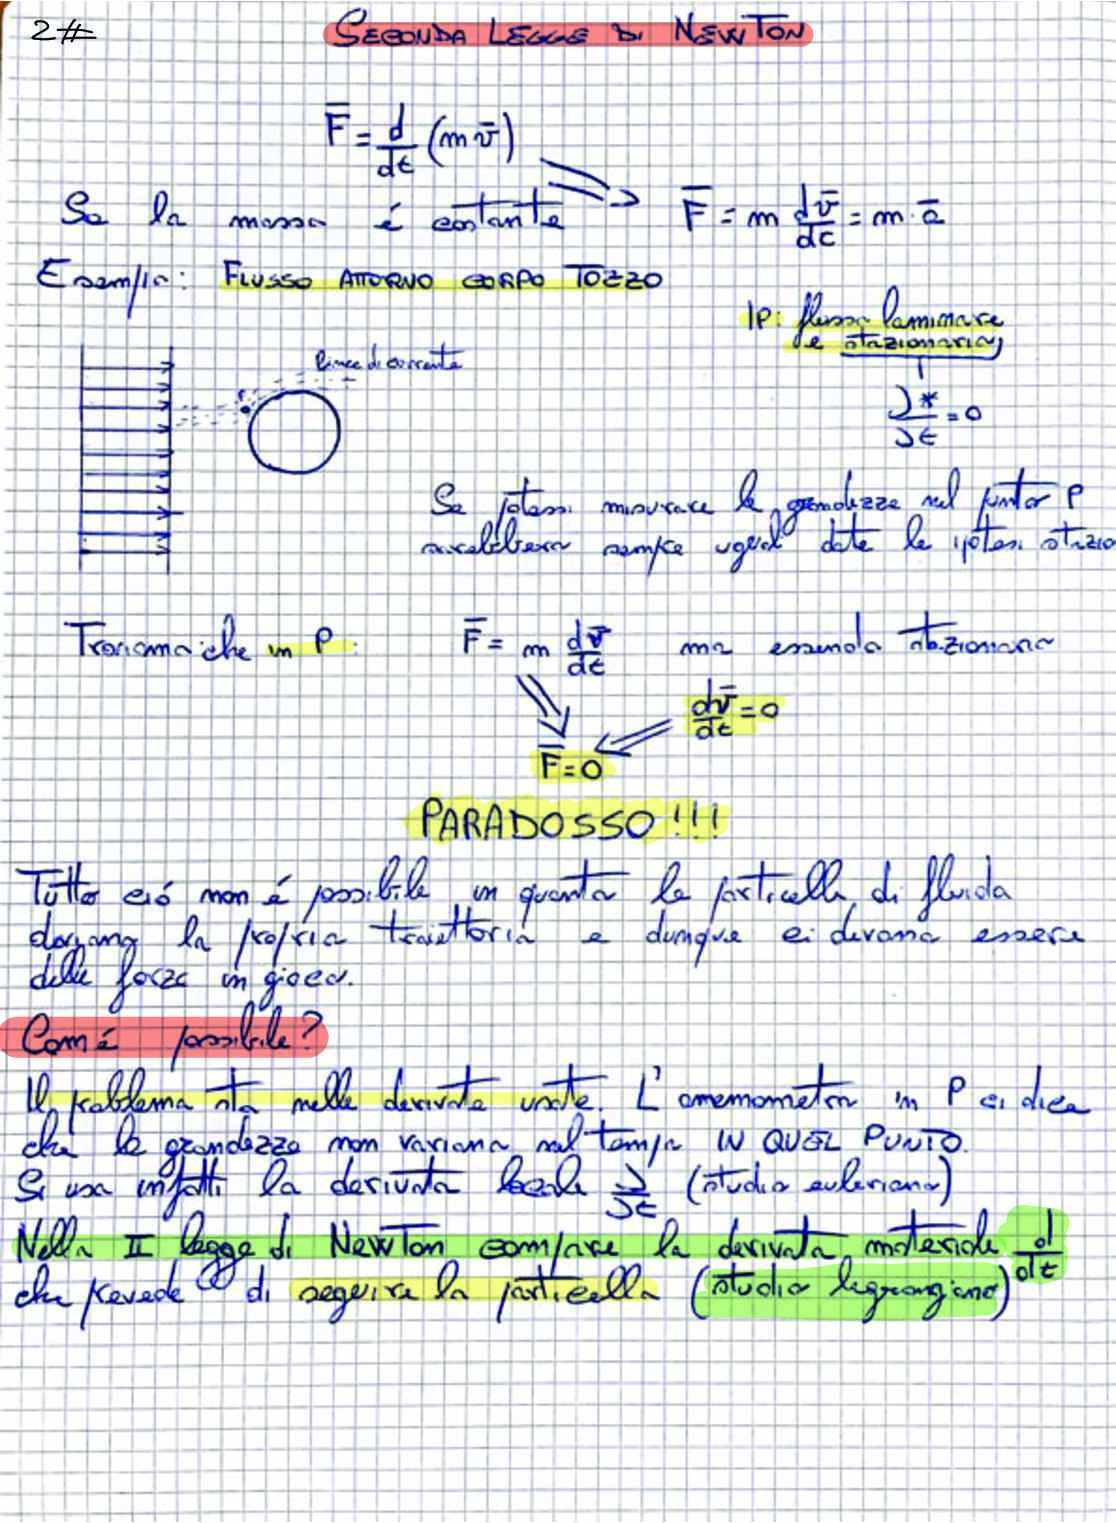 2#
SECONDA LEGGE DI NEWTON
F̄ = d/dt (m v̄)
Se la massa é costante ⇒ F̄ = m dv̄/dt = m · ā
Esempio: FLUSSO ATTORNO CORPO TOZZO
IP: flusso laminare
e stazionario
∂*/∂t = 0
linee di corrente
Se potessi misurare le grandezze nel punto P
sarebbero sempre uguali date le ipotesi stazio
Troviamo che in P: F̄ = m dv̄/dt ma essendo stazionario
dv̄/dt = 0
F̄ = 0
PARADOSSO!!!
Tutto ció non é possibile in quanto le particelle di fluido
la propria traiettoria e dunque ci devono essere
delle forze in gioco.
Com'é possibile?
Il problema sta nelle derivate usate. L'anemometro in P ci dice
che le grandezze non variano nel tempo IN QUEL PUNTO.
Si usa infatti la derivata locale ∂/∂t (studio euleriano)
Nella II legge di Newton compare la derivata materiale d/dt
che prevede di seguire la particella (studio legrangiano)